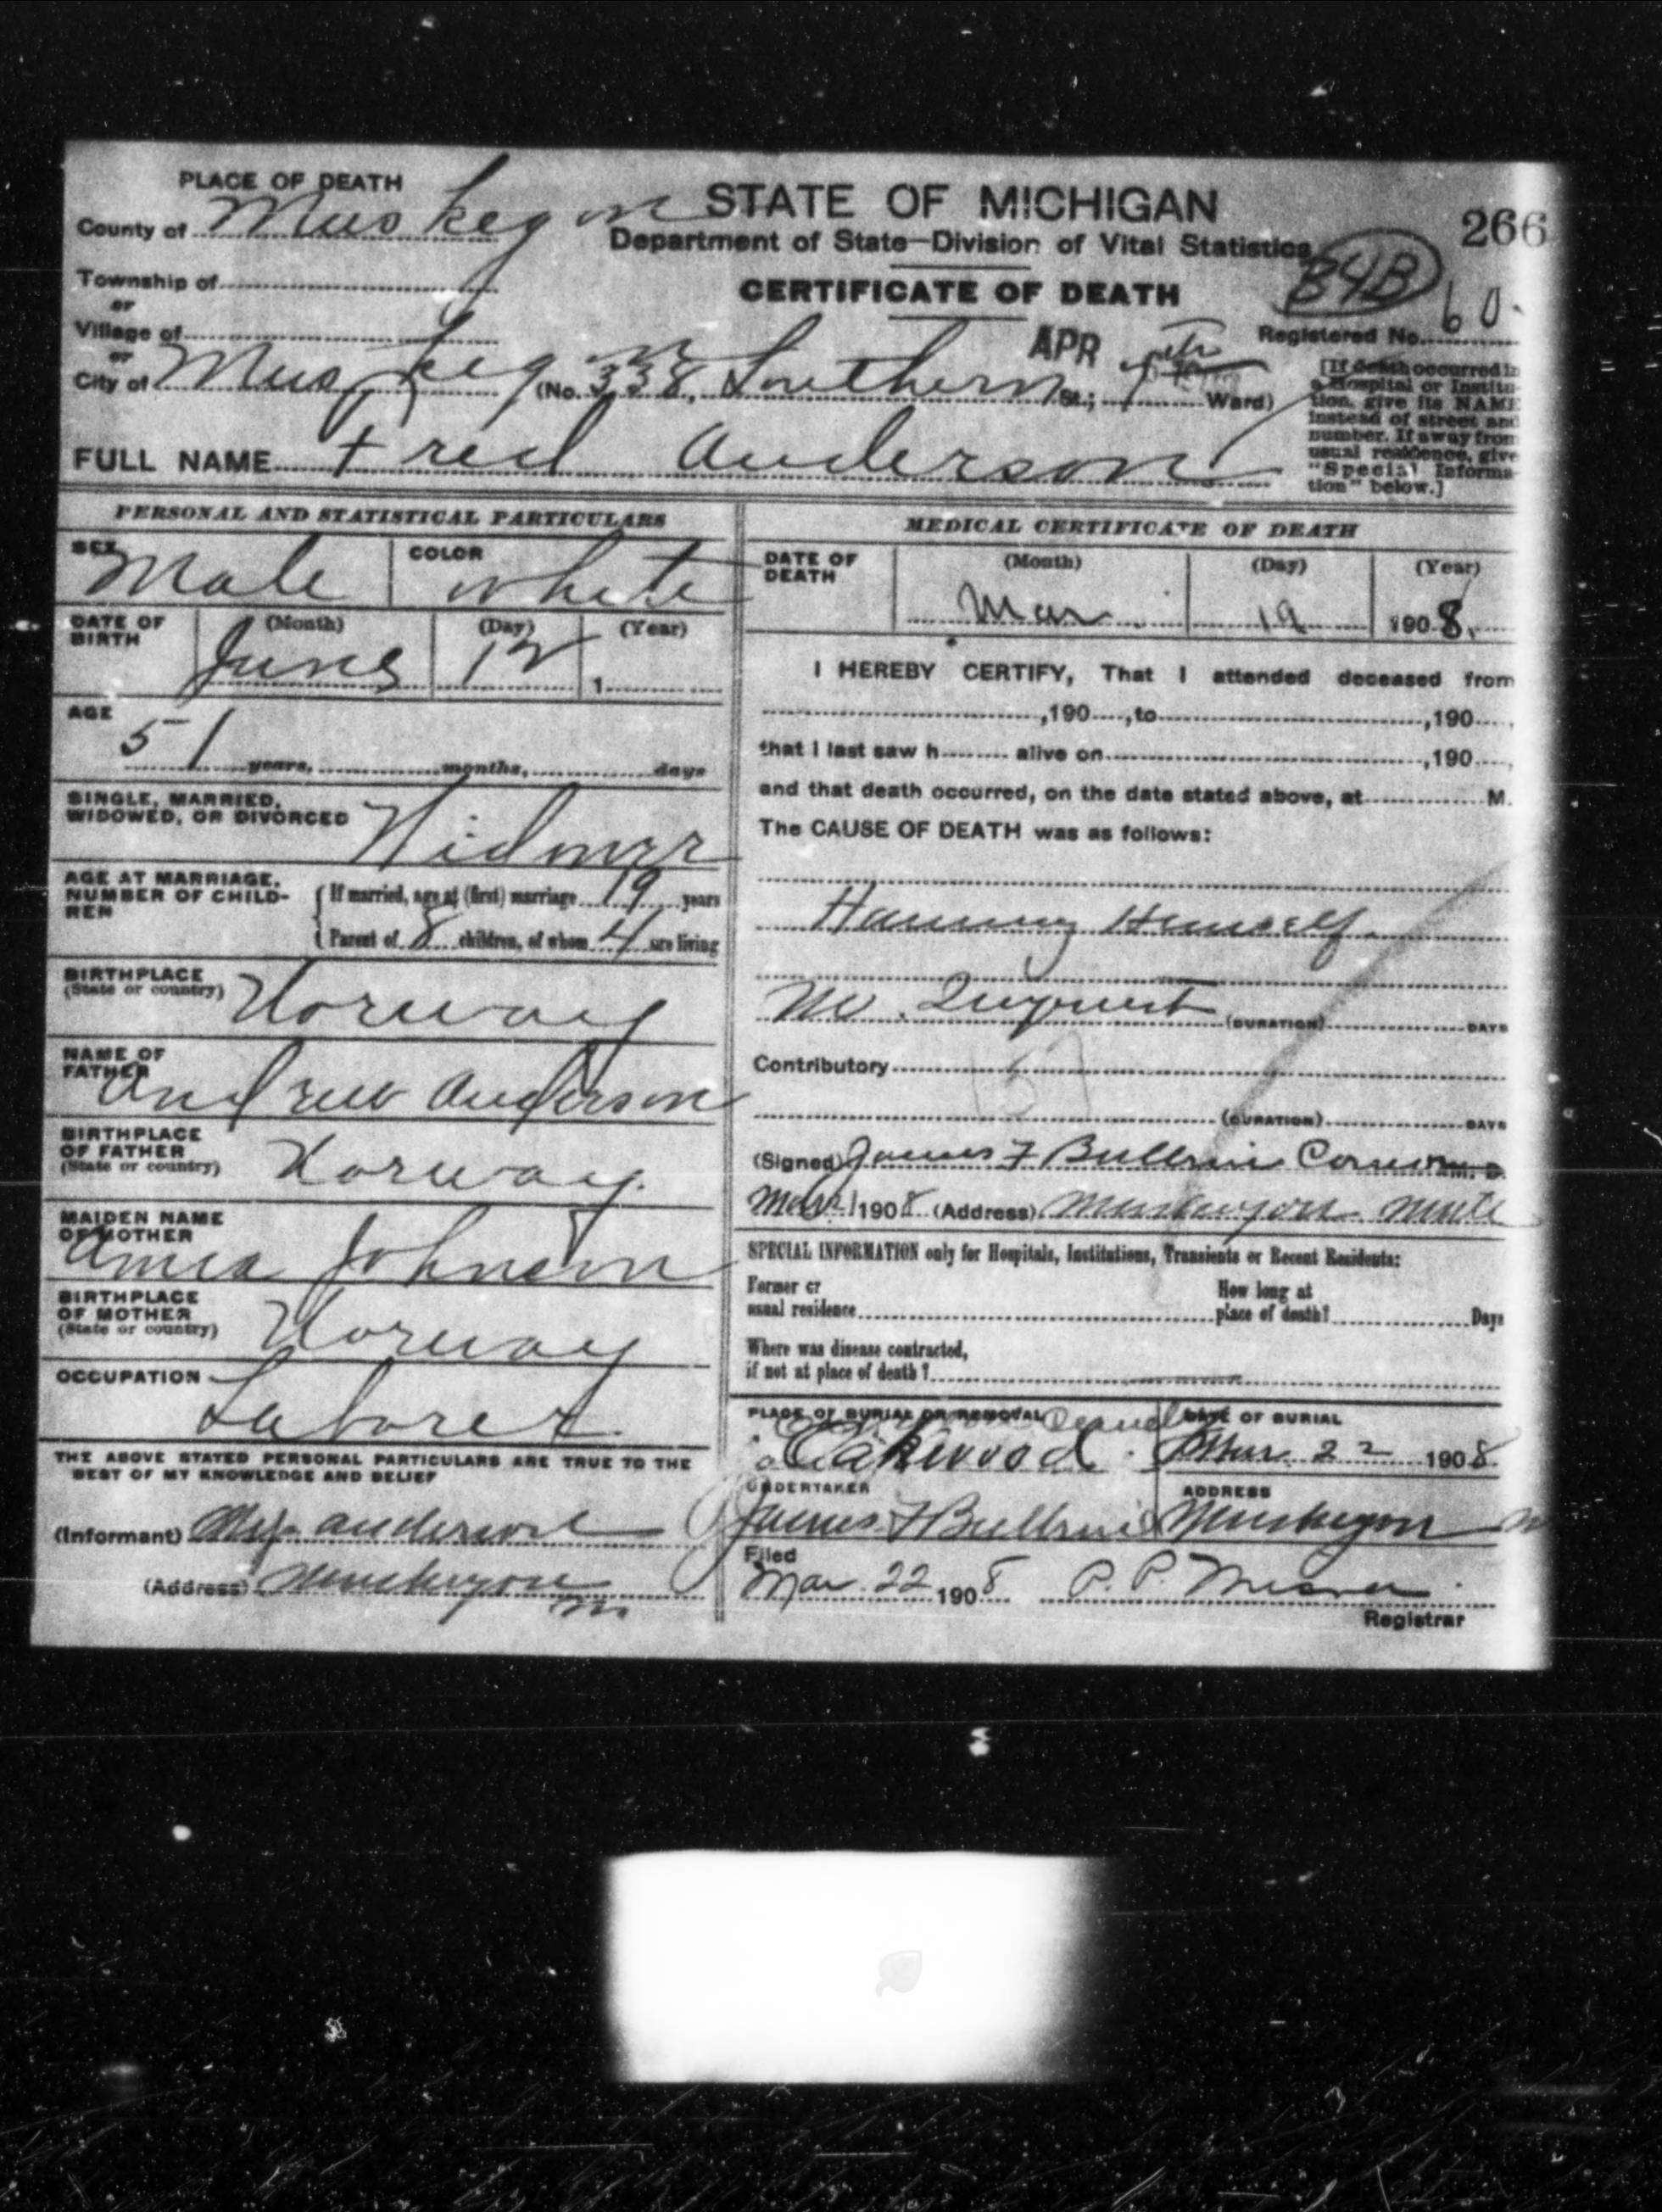 PLACE OF DEATH
County of Muskegon
STATE OF MICHIGAN
Department of State—Division of Vital Statistics
CERTIFICATE OF DEATH
266
B4B
Township of
or
Village of
or
City of Muskegon (No. 338, Southern St.; Ward)
APR
Registered No. 60
[If death occurred in
a Hospital or Institu-
tion, give its NAME
instead of street and
number. If away from
usual residence, give
"Special Informa-
tion" below.]
FULL NAME Fred Anderson
PERSONAL AND STATISTICAL PARTICULARS
SEX Male COLOR White
DATE OF BIRTH (Month) June (Day) 12 (Year) 1
AGE
51 years, months, days
SINGLE, MARRIED,
WIDOWED, OR DIVORCED Widower
AGE AT MARRIAGE,
NUMBER OF CHILD-
REN
If married, age at (first) marriage 19 years
Parent of 8 children, of whom 4 are living
BIRTHPLACE
(State or country) Norway
NAME OF
FATHER Andrew Anderson
BIRTHPLACE
OF FATHER
(State or country) Norway
MAIDEN NAME
OF MOTHER Johnson
BIRTHPLACE
OF MOTHER
(State or country) Norway
OCCUPATION
Laborer
THE ABOVE STATED PERSONAL PARTICULARS ARE TRUE TO THE
BEST OF MY KNOWLEDGE AND BELIEF
(Informant) Anderson
(Address) Muskegon
MEDICAL CERTIFICATE OF DEATH
DATE OF
DEATH (Month) Mar (Day) 19 (Year) 1908.
I HEREBY CERTIFY, That I attended deceased from
,190 ,to ,190 ,
that I last saw h alive on ,190 ,
and that death occurred, on the date stated above, at M.
The CAUSE OF DEATH was as follows:
Hanning Himself.
No. Inquest (DURATION) DAYS
Contributory
(DURATION) DAYS
(Signed) James F Coroner M. D.
1908 (Address) Muskegon
SPECIAL INFORMATION only for Hospitals, Institutions, Transients or Recent Residents:
Former or
usual residence
How long at
place of death? Days
Where was disease contracted,
if not at place of death?
PLACE OF BURIAL OR REMOVAL
Oakwood
DATE OF BURIAL
Mar. 22 1908
UNDERTAKER
James F
ADDRESS
Muskegon
Filed
Mar 22 1908 P. P. Misner
Registrar